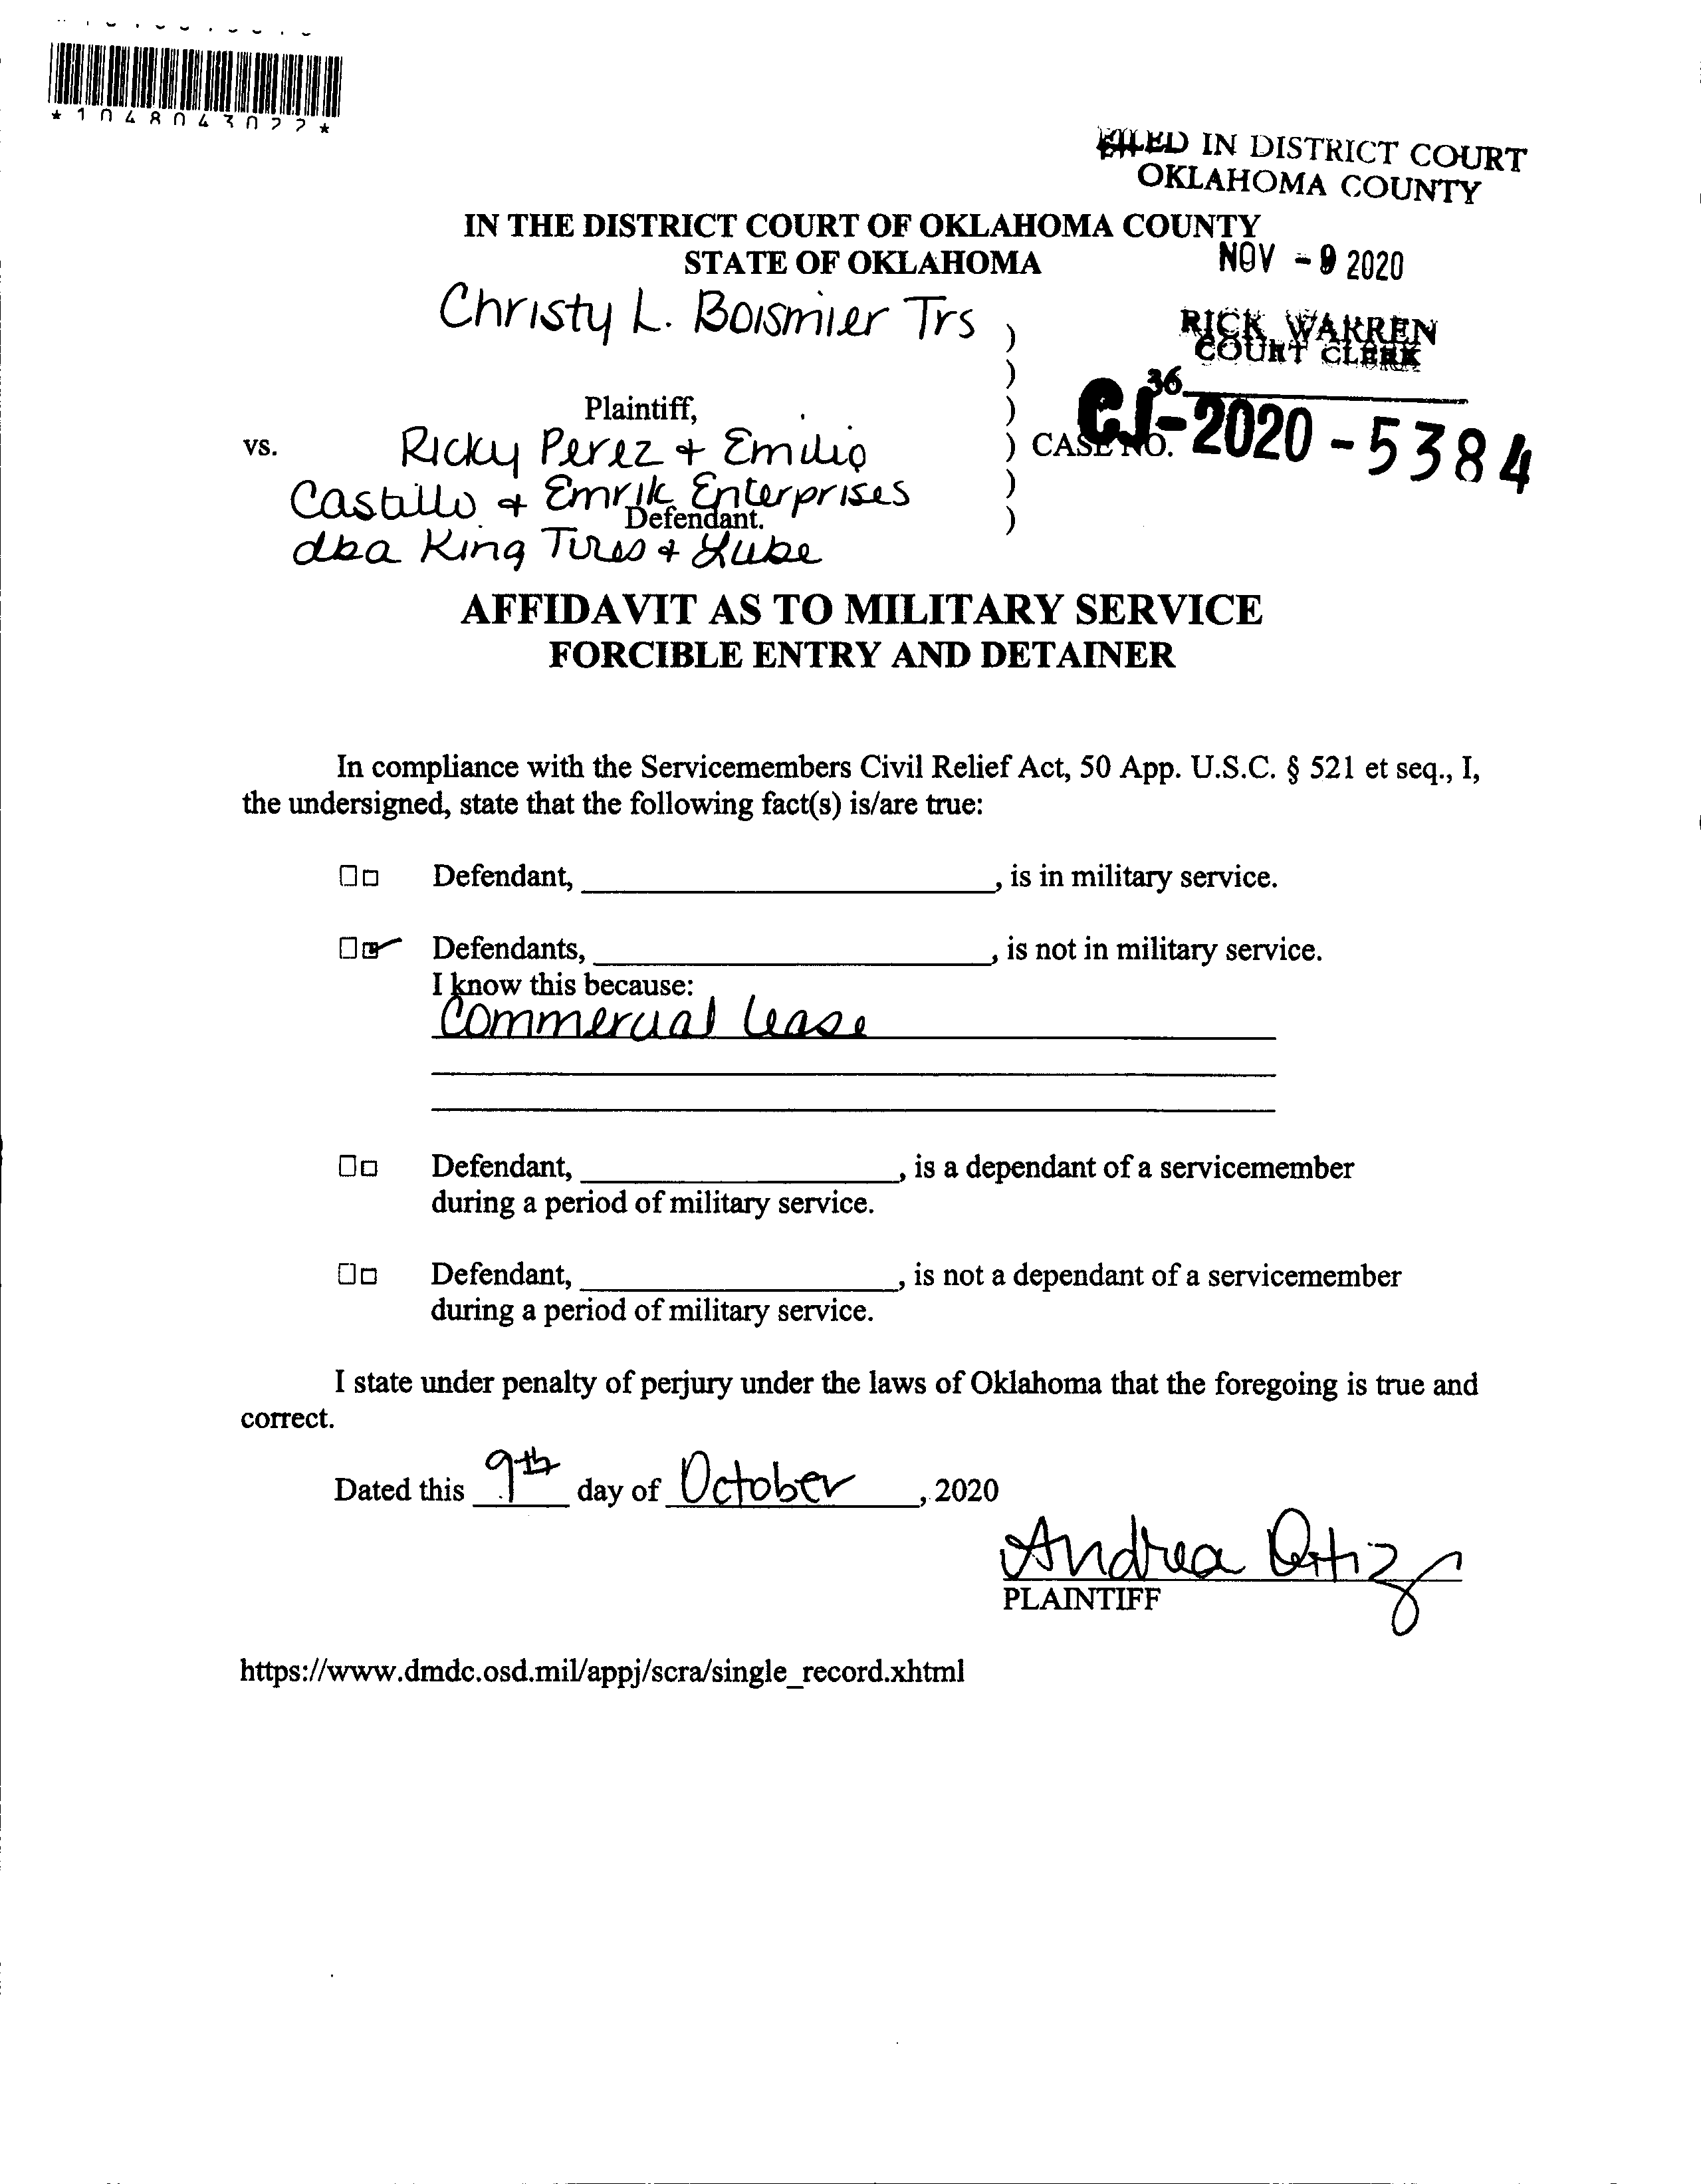 *1048043022*
FILED IN DISTRICT COURT
OKLAHOMA COUNTY
IN THE DISTRICT COURT OF OKLAHOMA COUNTY
STATE OF OKLAHOMA
NOV - 9 2020
Christy L. Boismier Trs )
RICK WARREN
COURT CLERK
)
36
Plaintiff, )
vs. Ricky Perez + Emilio ) CASE NO. CJ-2020-5384
Castillo + Emrik Enterprises )
Defendant. )
dba King Tires + Lube
AFFIDAVIT AS TO MILITARY SERVICE
FORCIBLE ENTRY AND DETAINER
In compliance with the Servicemembers Civil Relief Act, 50 App. U.S.C. § 521 et seq., I,
the undersigned, state that the following fact(s) is/are true:
Defendant, ____, is in military service.
Defendants, ____, is not in military service.
I know this because:
Commercial lease
Defendant, ____, is a dependant of a servicemember
during a period of military service.
Defendant, ____, is not a dependant of a servicemember
during a period of military service.
I state under penalty of perjury under the laws of Oklahoma that the foregoing is true and
correct.
Dated this 9th day of October, 2020
Andrea Ortiz
PLAINTIFF
https://www.dmdc.osd.mil/appj/scra/single_record.xhtml